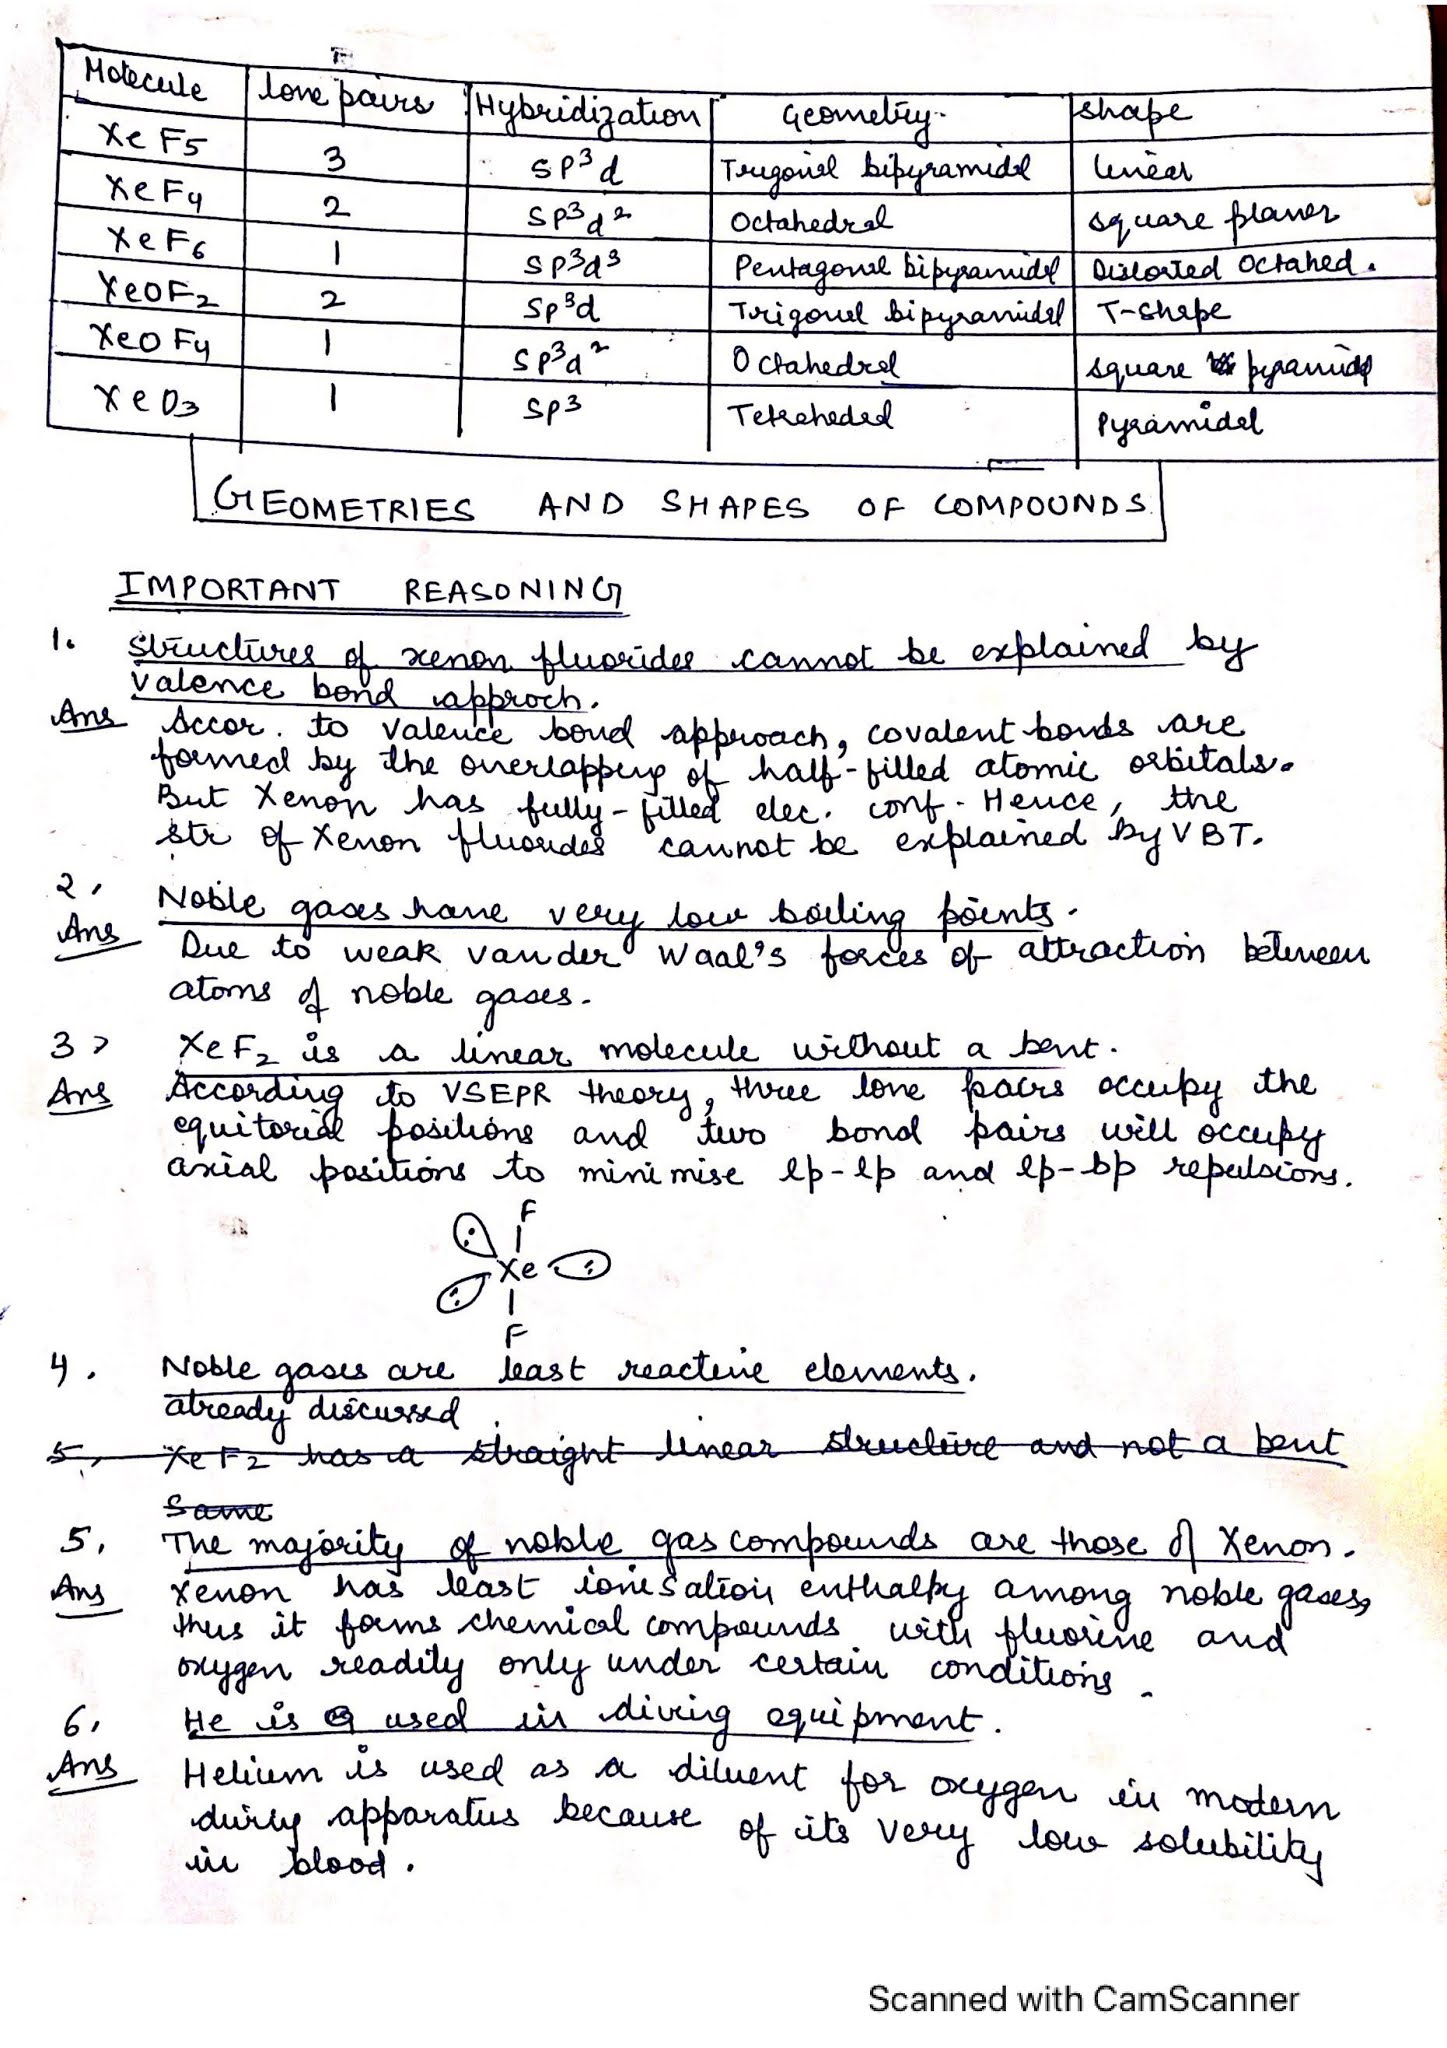 Molecule lone pairs Hybridization Geometry shape
XeF5 3 sp³d Trigonal bipyramidal linear
XeF4 2 sp³d² Octahedral square planer
XeF6 1 sp³d³ Pentagonal bipyramidal Distorted Octahed.
XeOF2 2 sp³d Trigonal bipyramidal T-shape
XeOF4 1 sp³d² Octahedral square pyramidal
XeO3 1 sp3 Tetrahedral Pyramidal
GEOMETRIES AND SHAPES OF COMPOUNDS
IMPORTANT REASONING
1. Structures of xenon fluorides cannot be explained by
valence bond approch.
Ans Accor. to valence bond approach, covalent bonds are
formed by the overlapping of half-filled atomic orbitals.
But Xenon has fully-filled elec. conf. Hence, the
str of Xenon fluorides cannot be explained by VBT.
2. Noble gases have very low boiling points.
Ans Due to weak vander Waal's forces of attraction between
atoms of noble gases.
3> XeF2 is a linear molecule without a bent.
Ans According to VSEPR theory, three lone pairs occupy the
equitorial positions and two bond pairs will occupy
axial positions to minimise lp-lp and lp-bp repulsions.
F
Xe
F
4. Noble gases are least reactive elements.
already discussed.
5. XeF2 has a straight linear structure and not a bent
Same
5. The majority of noble gas compounds are those of Xenon.
Ans Xenon has least ionisation enthalpy among noble gases,
thus it forms chemical compounds with fluorine and
oxygen readily only under certain conditions.
6. He is used in diving equipment.
Ans Helium is used as a diluent for oxygen in modern
diving apparatus because of its very low solubility
in blood.
Scanned with CamScanner